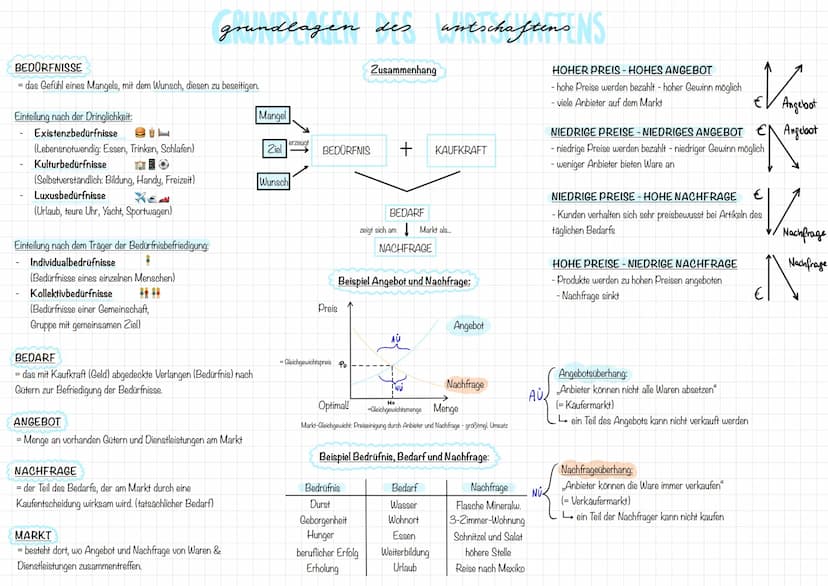 GRUNDLAGEN DES WIRTSCHAFTENS
grundlagen des wirtschaftens
BEDÜRFNISSE
= das Gefühl eines Mangels, mit dem Wunsch, diesen zu beseitigen.
Einteilung nach der Dringlichkeit:
- Existenzbedürfnisse
(Lebensnotwendig: Essen, Trinken, Schlafen)
- Kulturbedürfnisse
(Selbstverständlich: Bildung, Handy, Freizeit)
- Luxusbedürfnisse
(Urlaub, teure Uhr, Yacht, Sportwagen)
Einteilung nach dem Träger der Bedürfnisbefriedigung:
- Individualbedürfnisse
(Bedürfnisse eines einzelnen Menschen)
- Kollektivbedürfnisse
(Bedürfnisse einer Gemeinschaft,
Gruppe mit gemeinsamen Ziel)
BEDARF
= das mit Kaufkraft (Geld) abgedeckte Verlangen (Bedürfnis) nach
Gütern zur Befriedigung der Bedürfnisse.
ANGEBOT
= Menge an vorhanden Gütern und Dienstleistungen am Markt
NACHFRAGE
= der Teil des Bedarfs, der am Markt durch eine
Kaufentscheidung wirksam wird. (tatsächlicher Bedarf)
MARKT
= besteht dort, wo Angebot und Nachfrage von Waren &
Dienstleistungen zusammentreffen.
Zusammenhang
Mangel
Ziel
Wunsch
erzeugt
BEDÜRFNIS
+
KAUFKRAFT
BEDARF
zeigt sich am Markt als...
NACHFRAGE
Beispiel Angebot und Nachfrage:
Preis
Angebot
AÜ
= Gleichgewichtspreis
NÜ
Nachfrage
Optimal!
=Gleichgewichtsmenge
Menge
Markt-Gleichgewicht: Preiseinigung durch Anbieter und Nachfrage - größtmgl. Umsatz
Beispiel Bedrüfnis, Bedarf und Nachfrage:
Bedrüfnis Bedarf Nachfrage
Durst Wasser Flasche Mineralw.
Geborgenheit Wohnort 3-Zimmer-Wohnung
Hunger Essen Schnitzel und Salat
beruflicher Erfolg Weiterbildung höhere Stelle
Erholung Urlaub Reise nach Mexiko
HOHER PREIS - HOHES ANGEBOT
- hohe Preise werden bezahlt - hoher Gewinn möglich
- viele Anbieter auf dem Markt
€ Angebot
NIEDRIGE PREISE - NIEDRIGES ANGEBOT
- niedrige Preise werden bezahlt - niedriger Gewinn möglich
- weniger Anbieter bieten Ware an
€ Angebot
NIEDRIGE PREISE - HOHE NACHFRAGE
- Kunden verhalten sich sehr preisbewusst bei Artikeln des
täglichen Bedarfs
€ Nachfrage
HOHE PREISE - NIEDRIGE NACHFRAGE
- Produkte werden zu hohen Preisen angeboten
- Nachfrage sinkt
€ Nachfrage
AÜ
Angebotsüberhang:
„Anbieter können nicht alle Waren absetzen"
(= Käufermarkt)
ein Teil des Angebots kann nicht verkauft werden
NÜ
Nachfrageüberhang:
„Anbieter können die Ware immer verkaufen"
(= Verkäufermarkt)
ein Teil der Nachfrager kann nicht kaufen